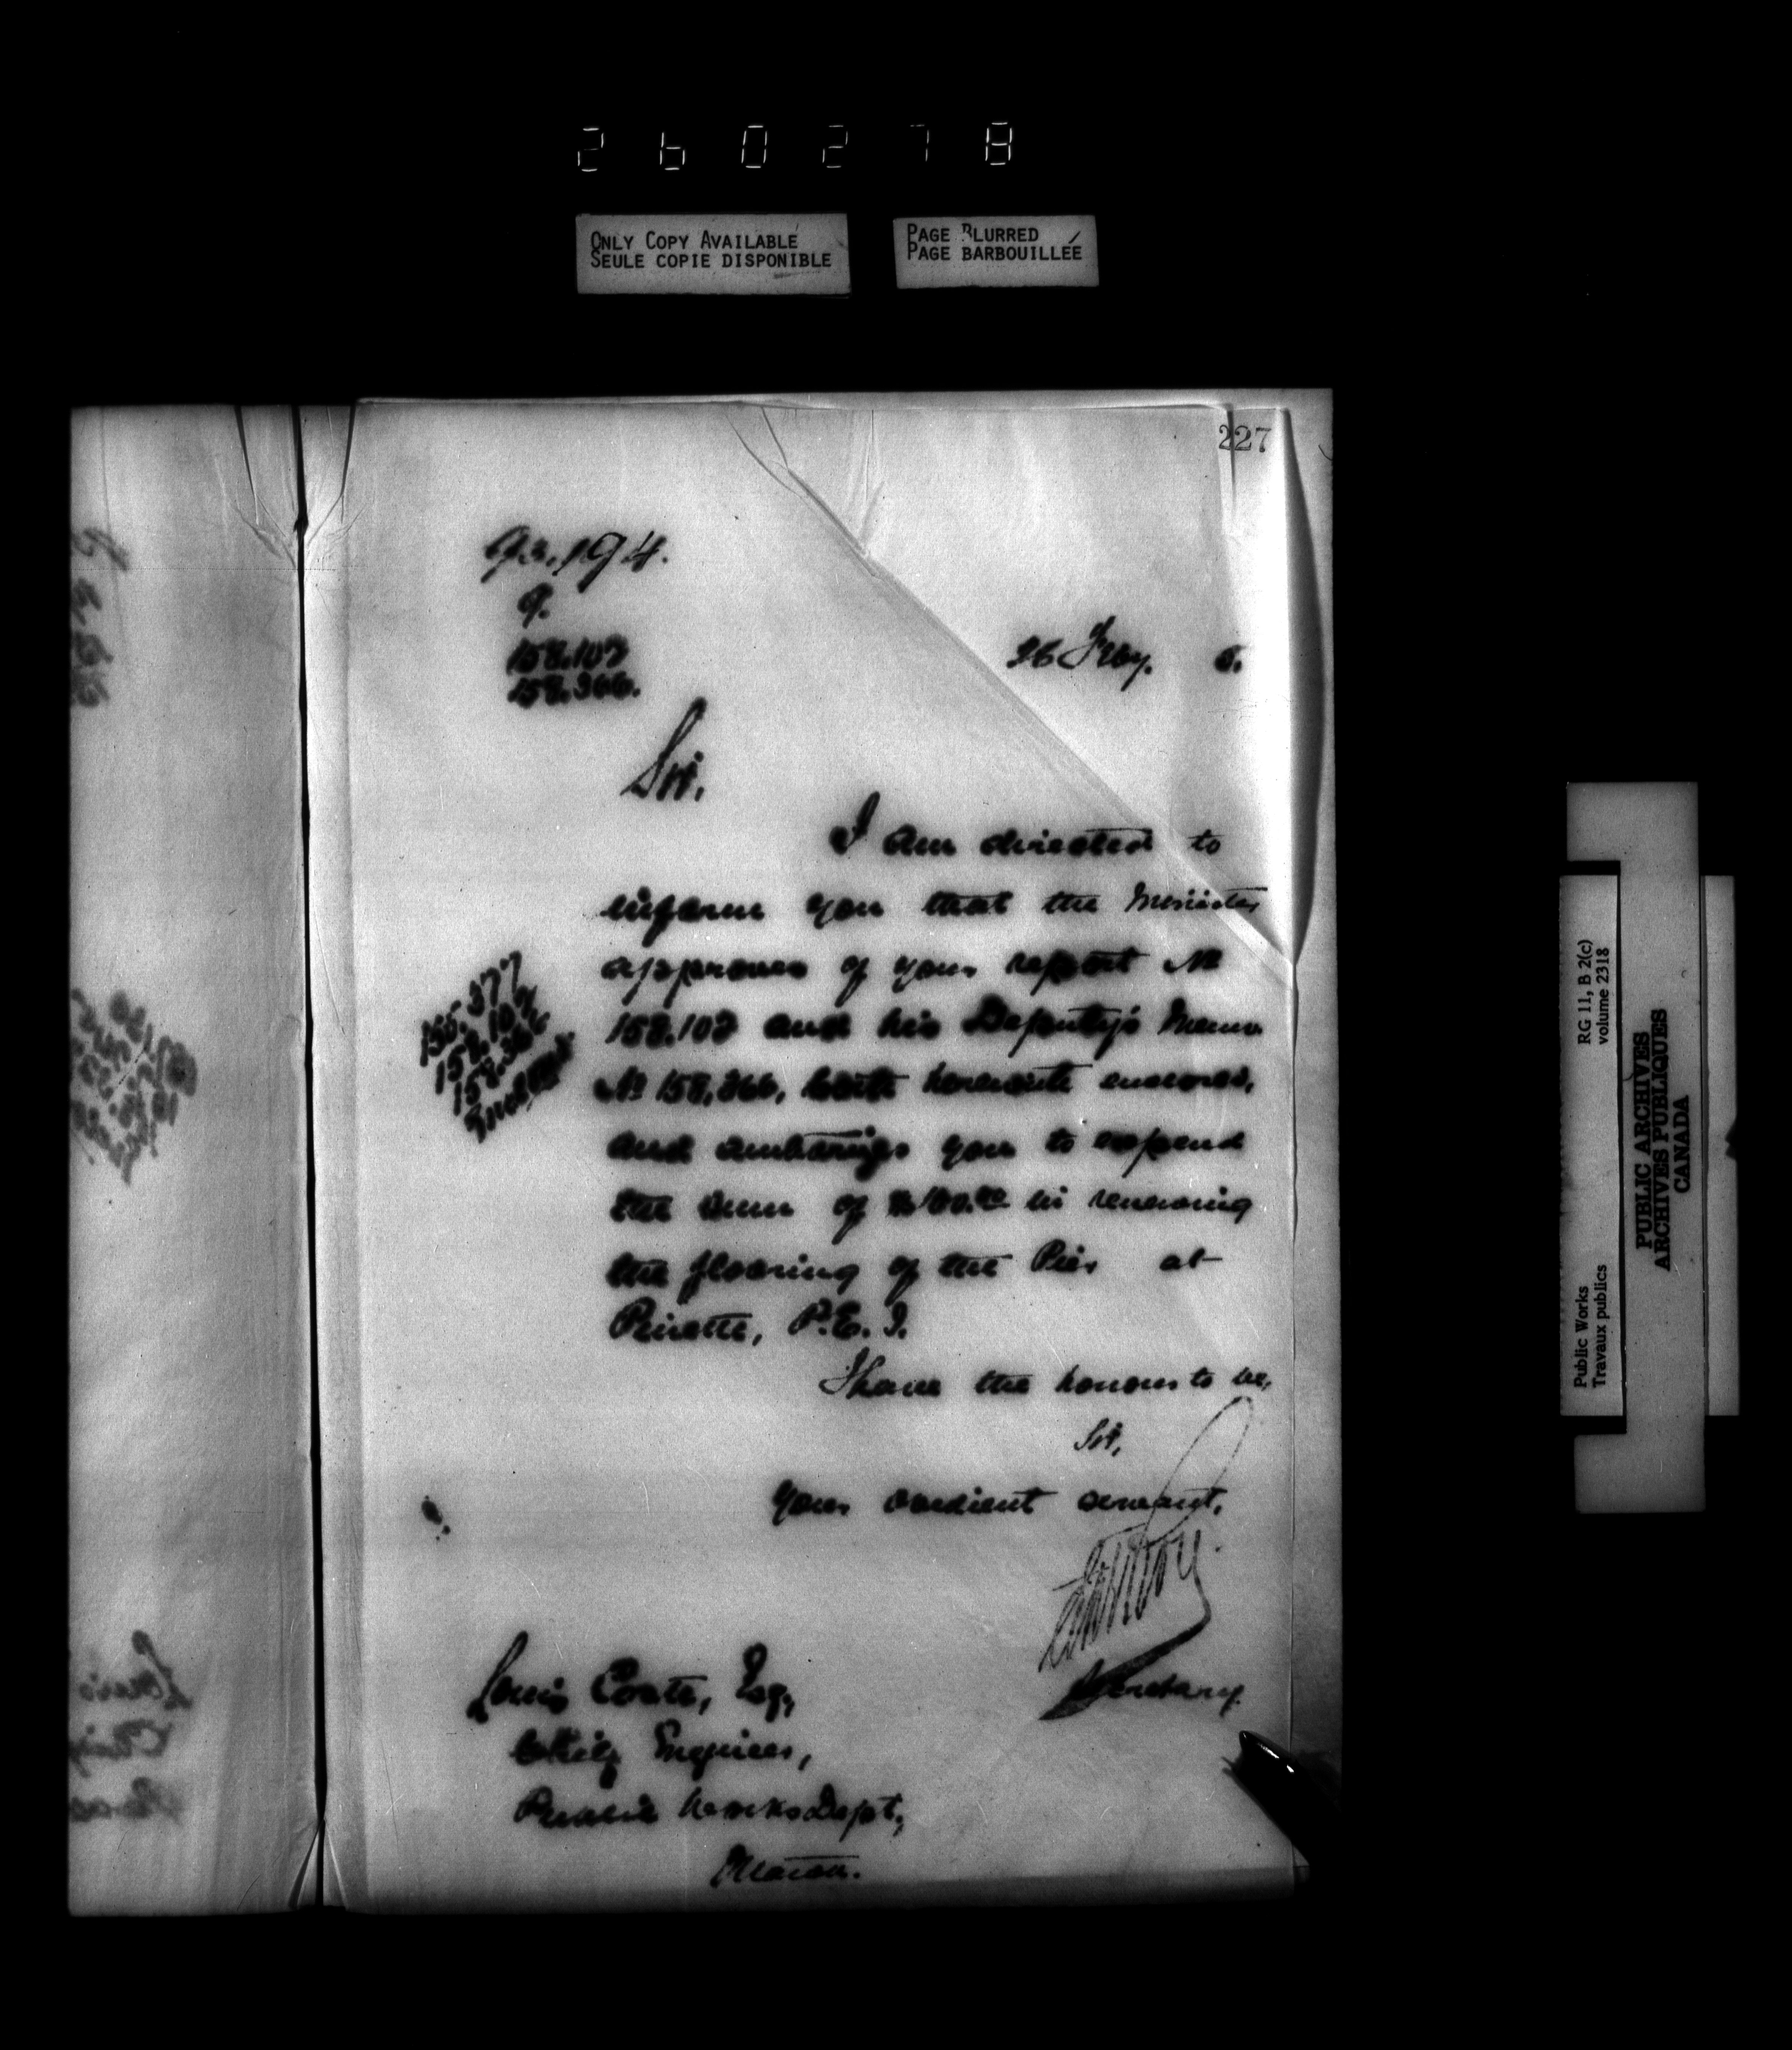 260278
ONLY COPY AVAILABLE
SEULE COPIE DISPONIBLE
PAGE BLURRED
PAGE BARBOUILLÉE
227
194.
26 Feby. 5.
Sir,
I am directed to
inform you that the Minister
approves of your report No
and his Deputy's Memo.
No 158,366, both herewith enclosed,
and authorizes you to expend
the sum of in renewing
the flooring of the Pier at
Pinette, P.E.I.
I have the honour to be,
Sir,
Your obedient servant,
Secretary.
Louis Coste, Esq,
Chief Engineer,
Public Works Dept,
Ottawa.
Public Works
Travaux publics
RG 11, B 2(c)
volume 2318
PUBLIC ARCHIVES
ARCHIVES PUBLIQUES
CANADA